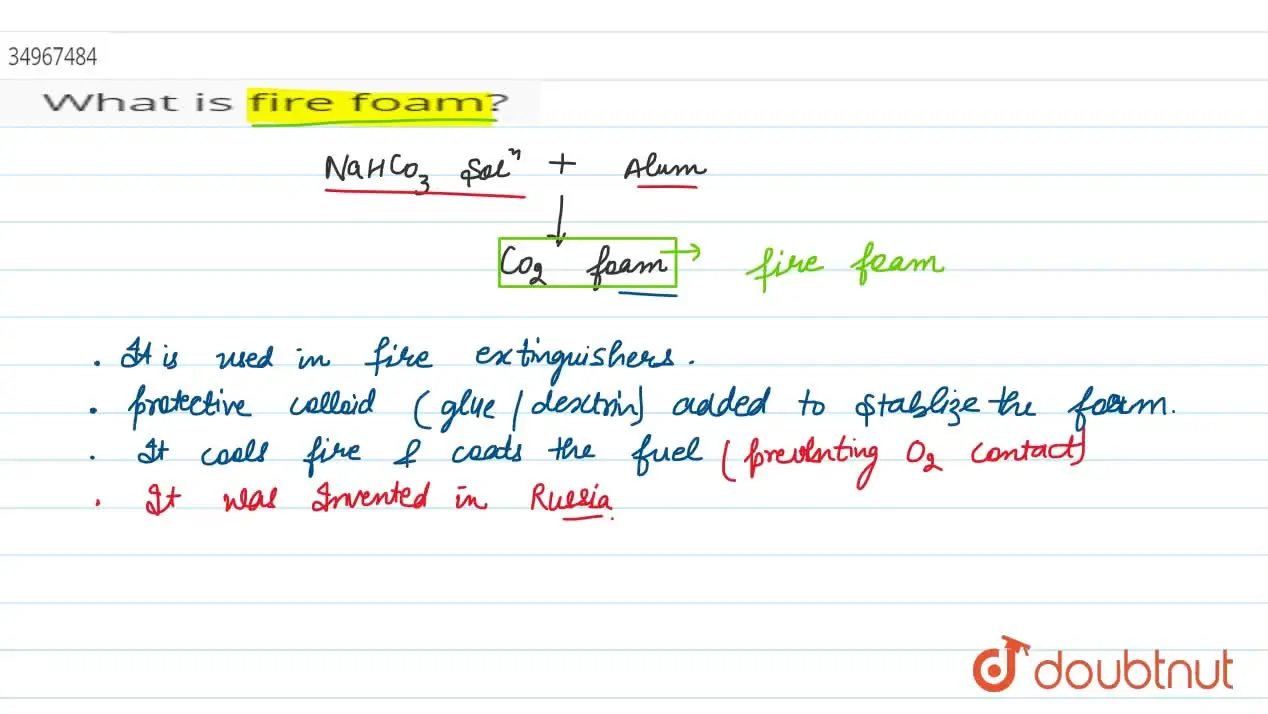 34967484
What is fire foam?
NaHCO3 Solⁿ + Alum
CO2 foam → fire foam
. It is used in fire extinguishers.
. protective colloid (glue/dextrin) added to stablize the foam.
. It cools fire & coats the fuel (preventing O2 contact)
. It was Invented in Russia.
doubtnut